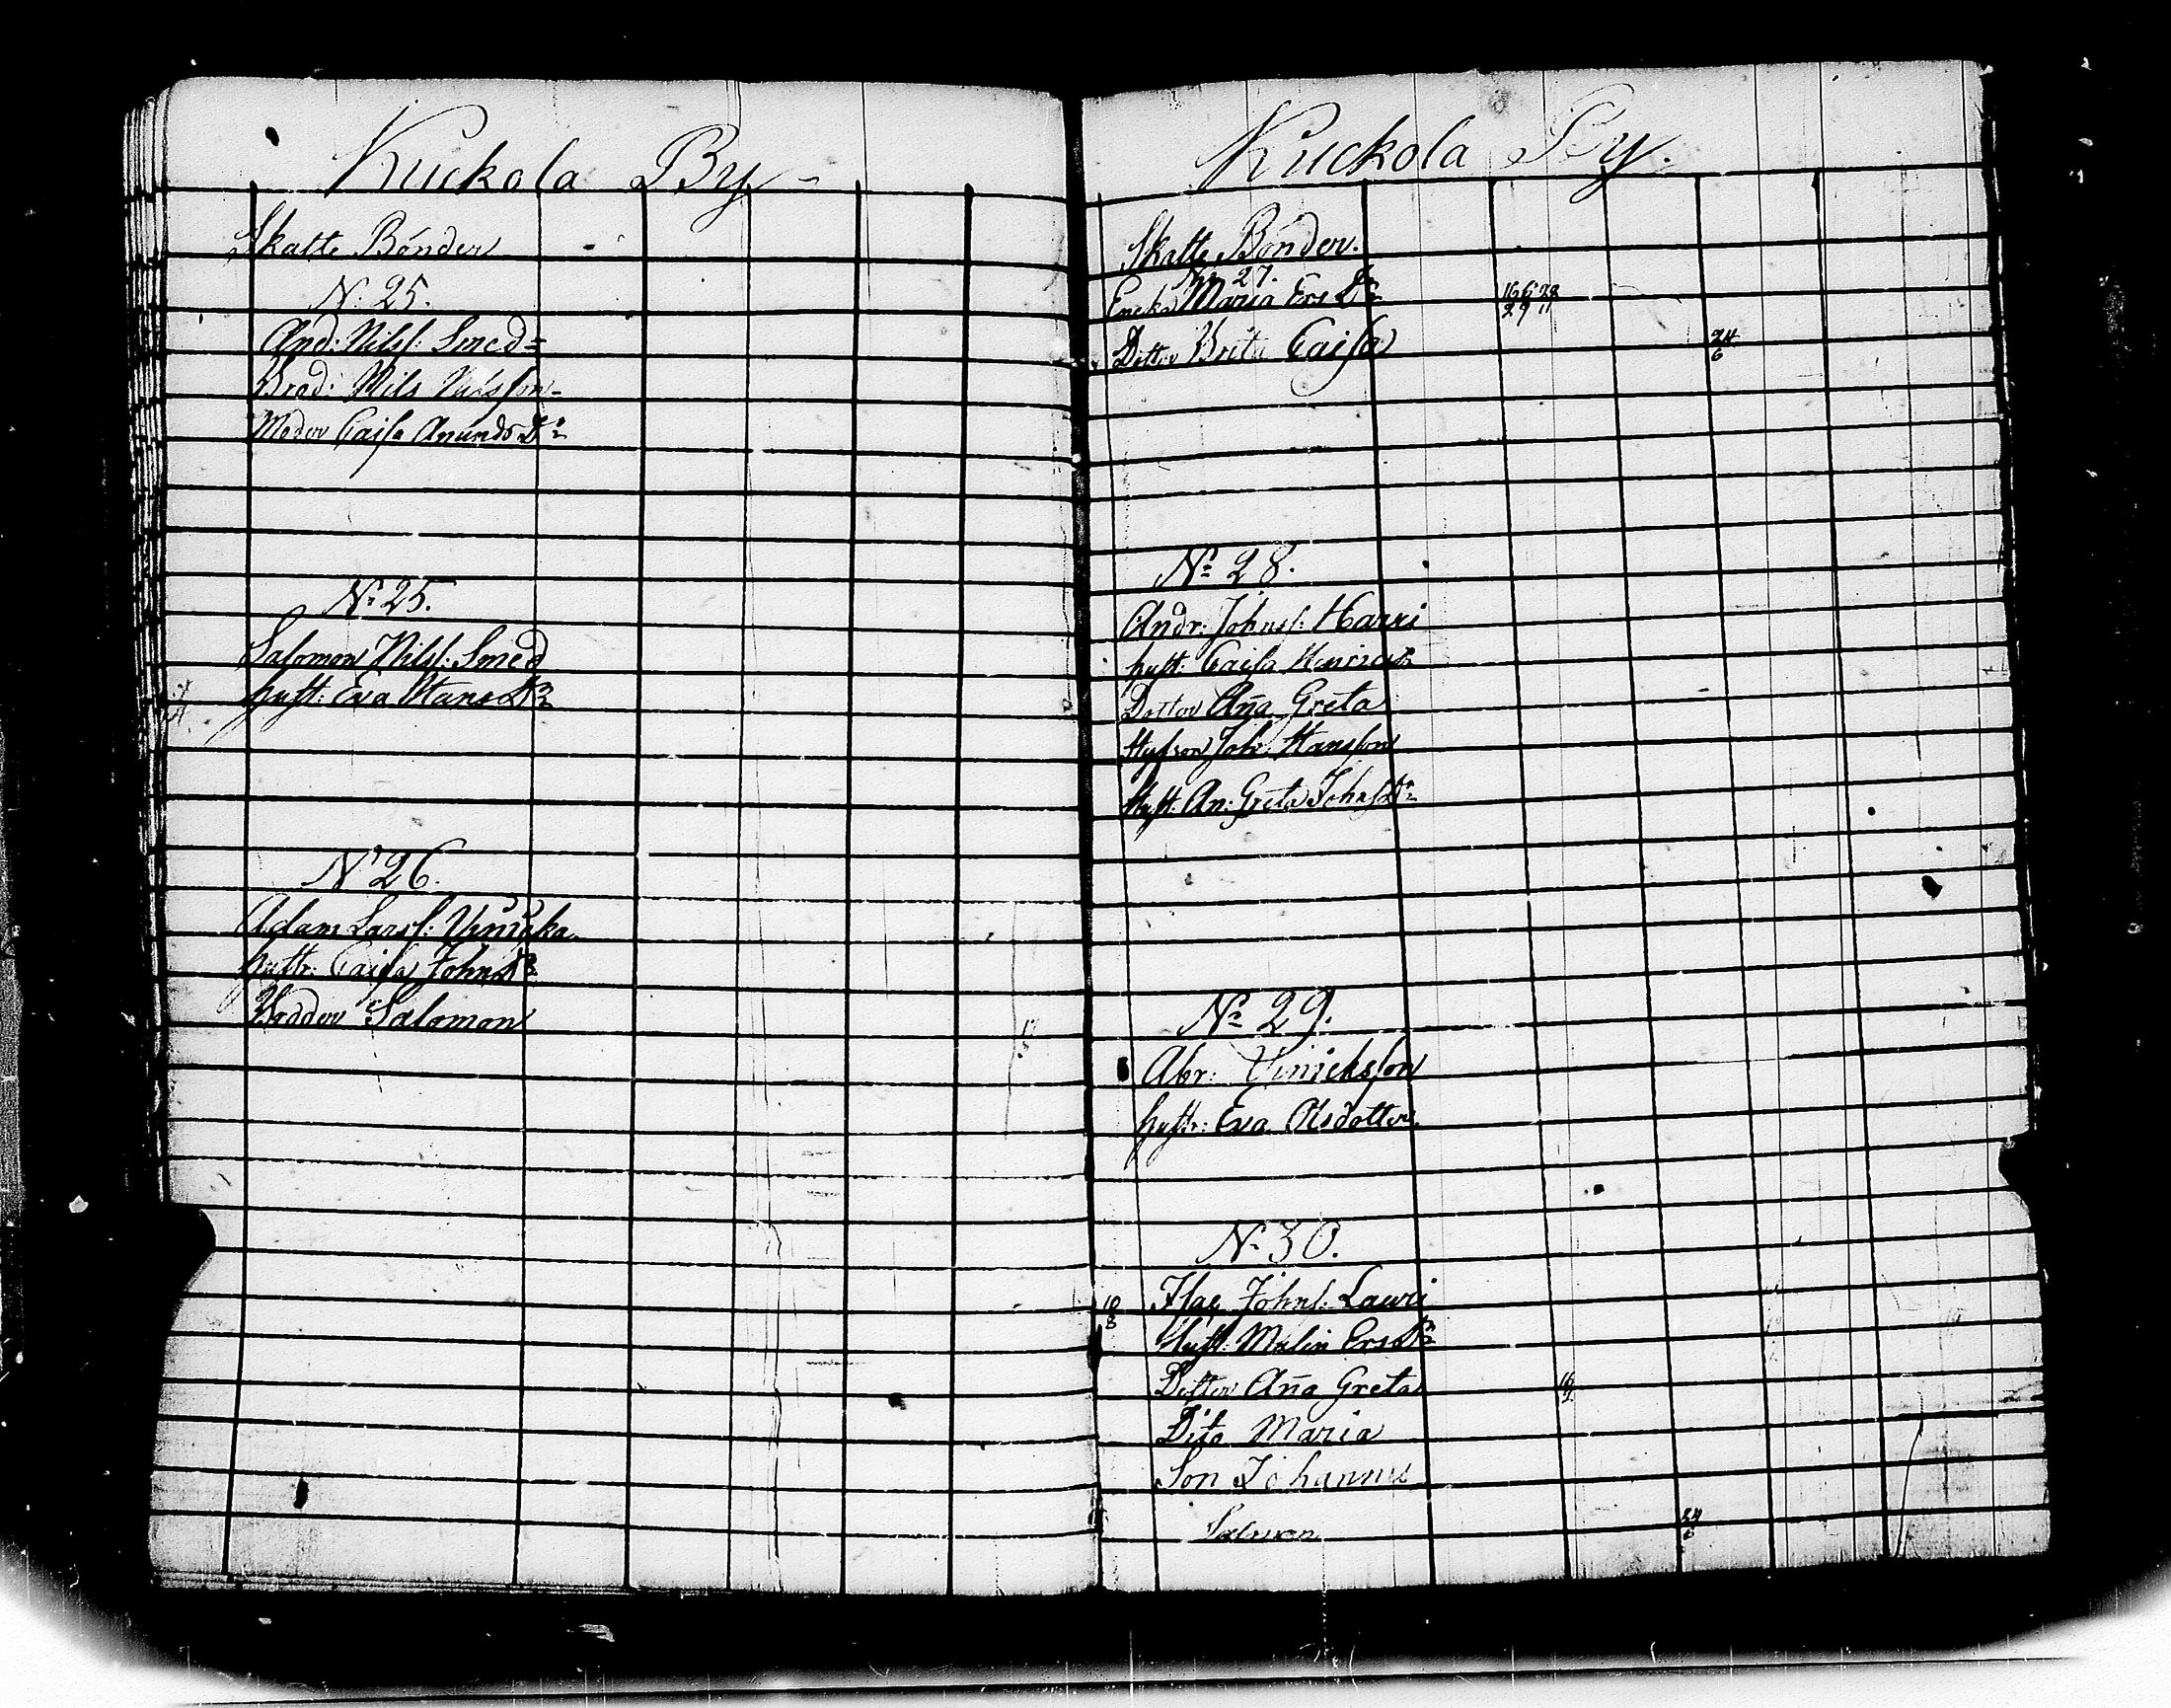 Kuckola By
Skatte Bönder
N: 25.
And: Nilss: Smed
Brod: Nils Nilsson
Moder Caisa Anunds Dr
Nr 25.
Salomon Nilss: Smed
hust: Eva Hans Dr
Nr 26.
Adam Larss:
hustr: Caisa Johns Dr
Salomon
Kuckola By.
Skatte Bönder.
Nr 27.
Encka Maria Ers Dr
16 6 28
29 11
Dotter Brita Caisa
24
6
Nr 28.
Andr: Johns: Harri
hust: Caisa
Dotter Aña Greta
Styfson Joh: Hansson
Hust: An: Greta Johs Dr
Nr 29.
Abr: Hinicksson
hustr: Eva Olsdotter
Nr 30.
10
8
Isac Johns: Lauri
Hust: Malin Ers Dr
Dotter Aña Greta
Dito Maria
Son Johannes
Salomon
24
6